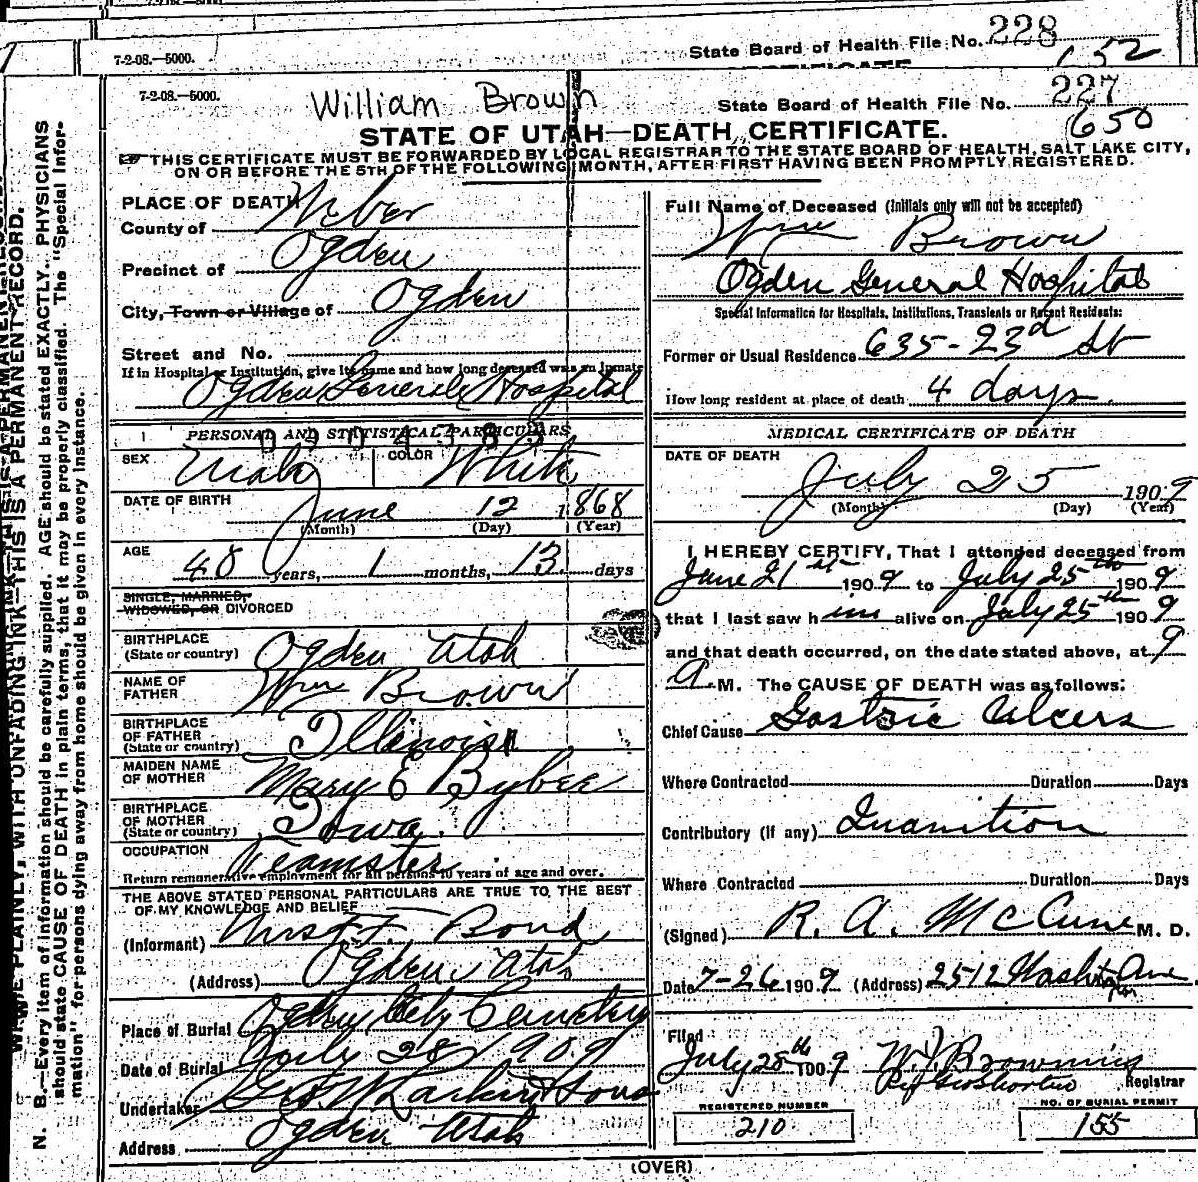 7-2-08.—5000.
State Board of Health File No. 228
652
7-2-08.—5000.
William Brown
State Board of Health File No. 227
650
STATE OF UTAH—DEATH CERTIFICATE.
THIS CERTIFICATE MUST BE FORWARDED BY LOCAL REGISTRAR TO THE STATE BOARD OF HEALTH, SALT LAKE CITY,
ON OR BEFORE THE 5TH OF THE FOLLOWING MONTH, AFTER FIRST HAVING BEEN PROMPTLY REGISTERED.
N. B.—Every item of information should be carefully supplied. AGE should be stated EXACTLY. PHYSICIANS
should state CAUSE OF DEATH in plain terms, that it may be properly classified. The "Special Infor-
mation" for persons dying away from home should be given in every instance.
WRITE PLAINLY, WITH UNFADING INK—THIS IS A PERMANENT RECORD.
PLACE OF DEATH
County of Weber
Precinct of Ogden
City, Town or Village of Ogden
Street and No.
If in Hospital or Institution, give its name and how long deceased was an inmate
Ogden General Hospital
PERSONAL AND STATISTICAL PARTICULARS
SEX Male COLOR White
DATE OF BIRTH June 12 1868
(Month) (Day) (Year)
AGE 40 years, 1 months, 13 days
SINGLE, MARRIED,
WIDOWED, OR DIVORCED
BIRTHPLACE
(State or country) Ogden Utah
NAME OF
FATHER Wm Brown
BIRTHPLACE
OF FATHER
(State or country) Illinois
MAIDEN NAME
OF MOTHER Mary E Bybee
BIRTHPLACE
OF MOTHER
(State or country) Iowa
OCCUPATION Teamster
Return remunerative employment for all persons 10 years of age and over.
THE ABOVE STATED PERSONAL PARTICULARS ARE TRUE TO THE BEST
OF MY KNOWLEDGE AND BELIEF
(Informant) Bond
(Address) Ogden Utah
Place of Burial Ogden City Cemetery
Date of Burial July 28 1909
Undertaker Geo. W Larkin & Sons
Address Ogden Utah
Full Name of Deceased (Initials only will not be accepted)
Wm Brown
Ogden General Hospital
Special Information for Hospitals, Institutions, Transients or Recent Residents:
Former or Usual Residence 635-23d St
How long resident at place of death 4 days
MEDICAL CERTIFICATE OF DEATH
DATE OF DEATH
July 25 1909
(Month) (Day) (Year)
I HEREBY CERTIFY, That I attended deceased from
June 21st 1909 to July 25th 1909
that I last saw him alive on July 25th 1909
and that death occurred, on the date stated above, at 9
A.M. The CAUSE OF DEATH was as follows:
Chief Cause Gastric Ulcers
Where Contracted Duration Days
Contributory (if any) Inanition
Where Contracted Duration Days
(Signed) R. A. McCune M. D.
Date 7-26 1909 (Address) 2512 Washington Ave
Filed
July 28th 1909 W. J. Browning
Registrar
REGISTERED NUMBER
210
NO. OF BURIAL PERMIT
155
(OVER)